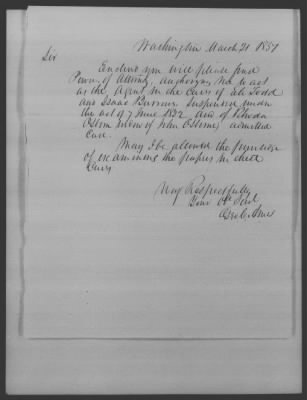 Washington March 21 1851
Sir
Enclosed you will please find
Power of Attorney, authorizing me to act
as the Agent in the Cases of Eli Todd
and Isaac Suspended under
the act of 7 June 1832 and of
Osborn widow of John Osborne, admitted
Case.
May I be allowed the privilege
of examining the papers in said
Cases
Very Respectfully
Your Obt Servt